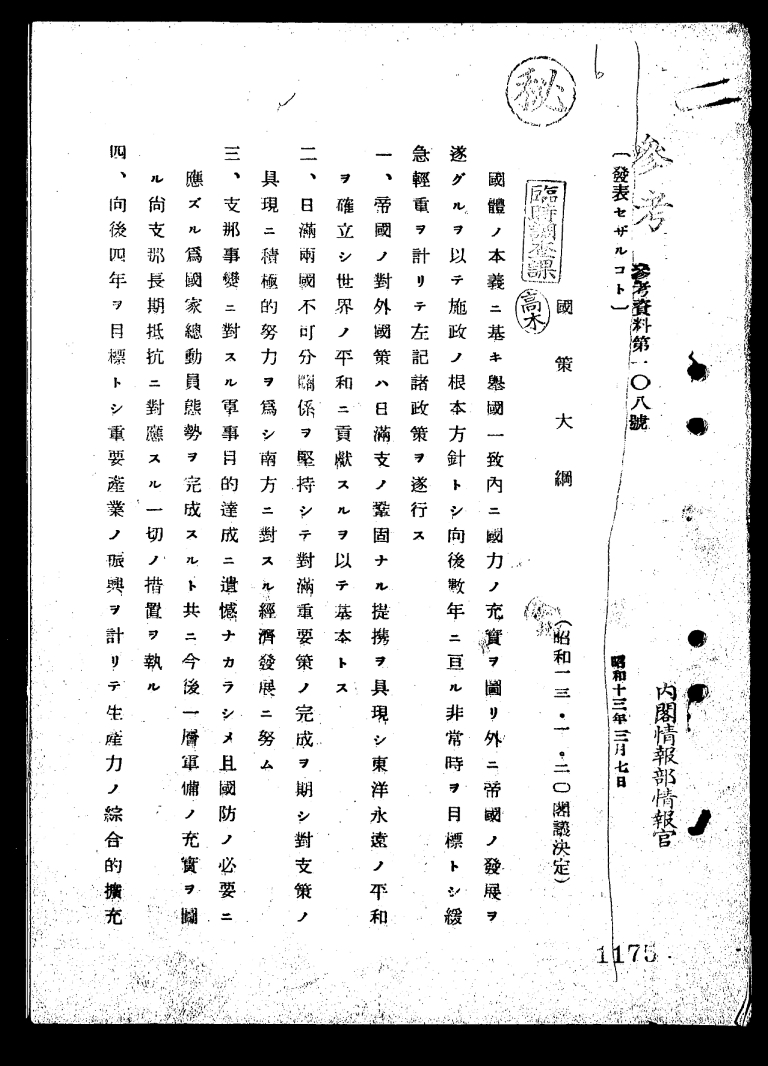 二
參考
參考資料第一〇八號
〔發表セザルコト〕
內閣情報部情報官
昭和十三年三月七日
秋
臨時調査課
高木
國策大綱
(昭和一三・一・二〇閣議決定)
國體ノ本義ニ基キ擧國一致內ニ國力ノ充實ヲ圖リ外ニ帝國ノ發展ヲ
遂グルヲ以テ施政ノ根本方針トシ向後數年ニ亘ル非常時ヲ目標トシ緩
急輕重ヲ計リテ左記諸政策ヲ遂行ス
一、帝國ノ對外國策ハ日滿支ノ鞏固ナル提携ヲ具現シ東洋永遠ノ平和
ヲ確立シ世界ノ平和ニ貢獻スルヲ以テ基本トス
二、日滿兩國不可分關係ヲ堅持シテ對滿重要策ノ完成ヲ期シ對支策ノ
具現ニ積極的努力ヲ爲シ南方ニ對スル經濟發展ニ努ム
三、支那事變ニ對スル軍事目的達成ニ遺憾ナカラシメ且國防ノ必要ニ
應ズル爲國家總動員態勢ヲ完成スルト共ニ今後一層軍備ノ充實ヲ圖
ル尙支那長期抵抗ニ對應スル一切ノ措置ヲ執ル
四、向後四年ヲ目標トシ重要產業ノ振興ヲ計リテ生產力ノ綜合的擴充
1175